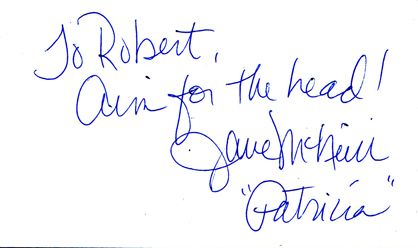 To Robert,
Aim for the head!
Jane McNeill
"Patricia"